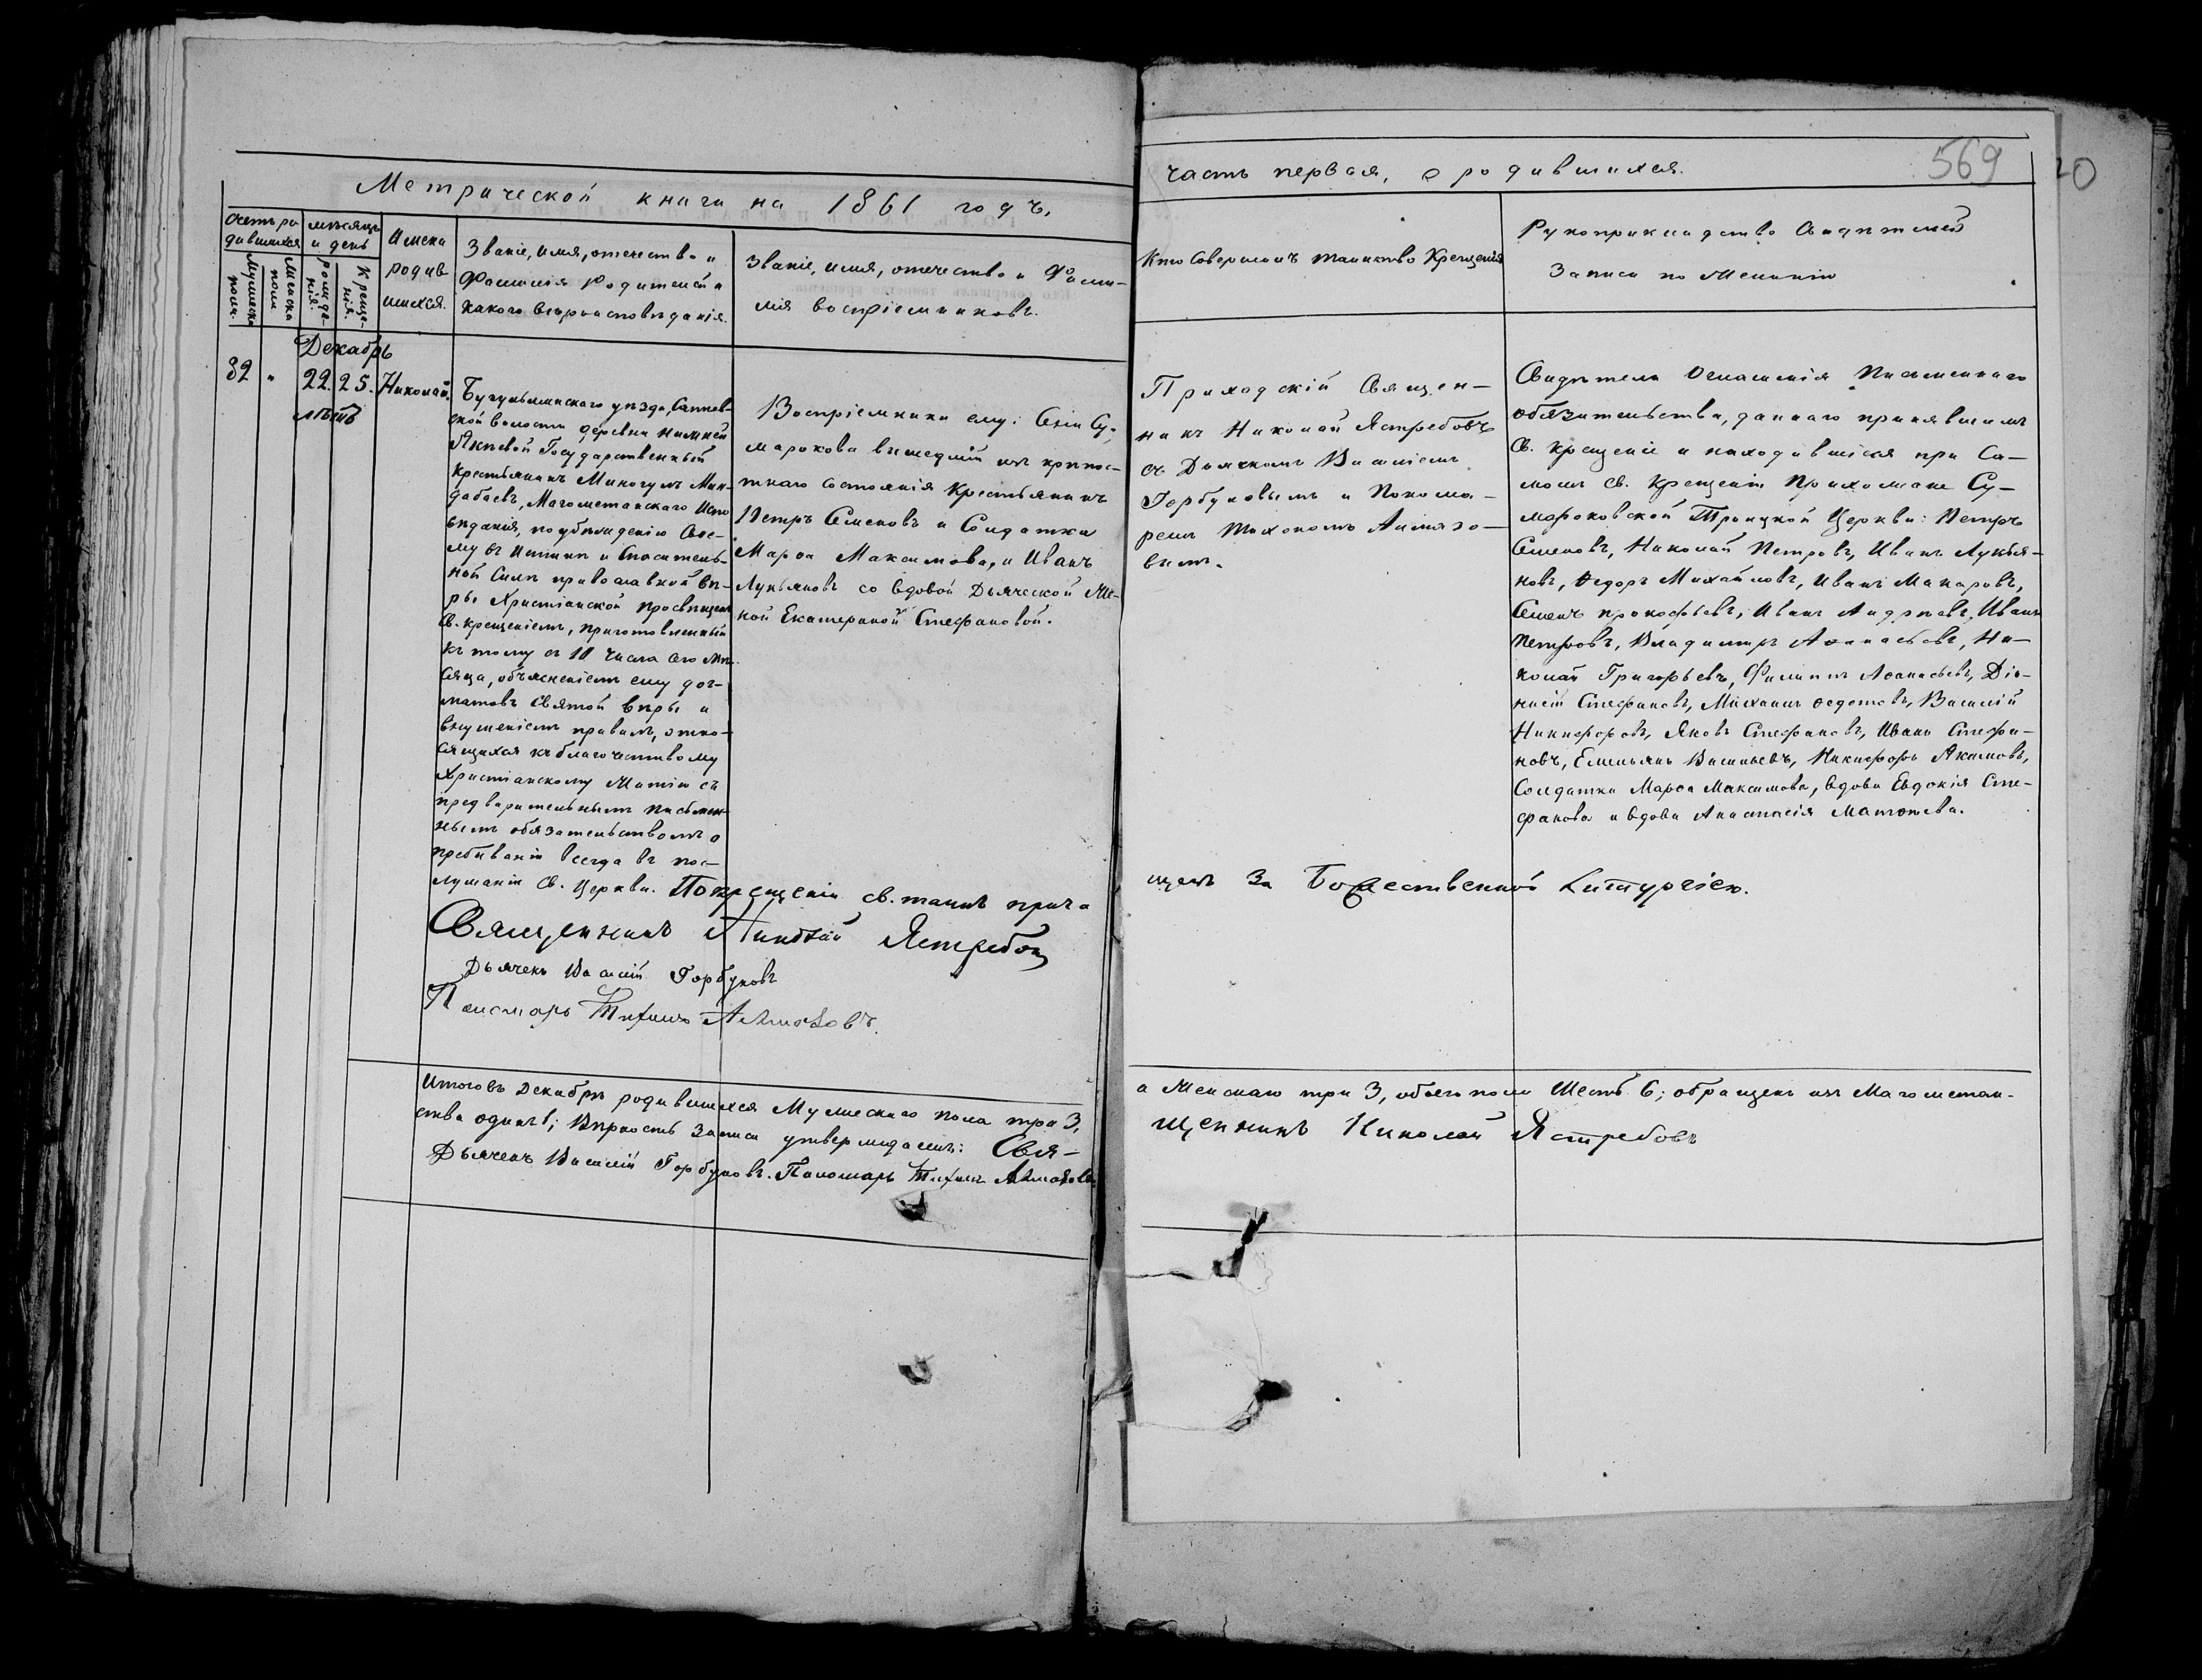 Метрической книги на 1861 годъ,
часть первая, о родившихся.
569
Счетъ ро
дившихся
мѣсяцъ
и день
Имена
родив
шихся.
Мужеска
пола.
Женска
пола
рожде-
нія.
Креще-
нія.
Званіе, имя, отечество и
Фамилія Родителей и
какого вѣроисповѣданія.
Званіе, имя, отечество и Фами-
лія воспріемниковъ.
Кто Совершалъ таинство Крещенія
Рукоприкладство Свидѣтелей
Записи по Желанію
Декабрь
32 " 22. 25. Николай.
лѣтъ
Бугульминскаго уѣзда,
ской волости деревни нижней
Государственный
Крестьянинъ Миногулъ Мин-
дабаевъ, Магометанскаго Испо
вѣданія, по убѣжденію Сво-
му въ Истинѣ и Спаситель-
ной Силѣ православной вѣ-
ры Христіанской просвѣщенъ
Св. крещеніемъ, приготовленный
къ тому съ 10 числа сего мѣ-
сяца, объясненіемъ ему дог-
матовъ Святой вѣры и
внушеніемъ правилъ, отно-
сящихся къ благочестивому
Христіанскому Житію съ
предварительнымъ письмен-
нымъ обязательствомъ о
пребываніи всегда въ пос-
лушаніи Св. Церкви. По крещеніи св. таинъ прича
щенъ За Божественной Литургіею.
Воспріемники ему: Села Су-
марокова вышедшій изъ крѣпос-
тнаго состоянія Крестьянинъ
Петръ Семеновъ и Солдатка
Марѳа Максимова, и Иванъ
Лукьяновъ со вдовой Дьяческой Же-
ной Екатериной Стефановой.
Приходскій Священ-
никъ Николай Ястребовъ
съ Дьячкомъ Василіемъ
Горбуновымъ и Понома-
ремъ Тихономъ Алмазо-
вымъ.
Свидѣтели Оглашенія Письменнаго
обязательства, даннаго принявшимъ
Св. крещеніе и находившіеся при Са-
момъ св. Крещеніи Прихожане Су-
мароковской Троицкой Церкви: Петръ
Семеновъ, Николай Петровъ, Иванъ Лукья-
новъ, Ѳедоръ Михайловъ, Иванъ Макаровъ,
Семенъ прокофьевъ, Иванъ Андреевъ, Иванъ
Петровъ, Владимиръ Аѳанасьевъ, Ни-
колай Григорьевъ, Филиппъ Аѳанасьевъ, Діо-
нисій Стефановъ, Михаилъ Ѳедотовъ, Василій
Никифоровъ, Яковъ Стефановъ, Иванъ Стефа-
новъ, Емельянъ Васильевъ, Никифоръ Акимовъ,
Солдатка Марѳа Максимова, вдова Евдокія Сте-
фанова и вдова Анастасія Матвѣева.
Священникъ Николай Ястребовъ
Дьячекъ Василій Горбуновъ
Пономарь Тихонъ Алмазовъ.
Итого въ Декабрѣ родившихся Мужескаго пола три 3,
а Женскаго три 3, обоего пола Шесть 6; обращенъ изъ Магометан-
ства одинъ 1; Вѣрность Записи утверждаемъ: Свя-
щенникъ Николай Ястребовъ
Дьячекъ Василій Горбуновъ. Пономарь Тихонъ Алмазовъ.